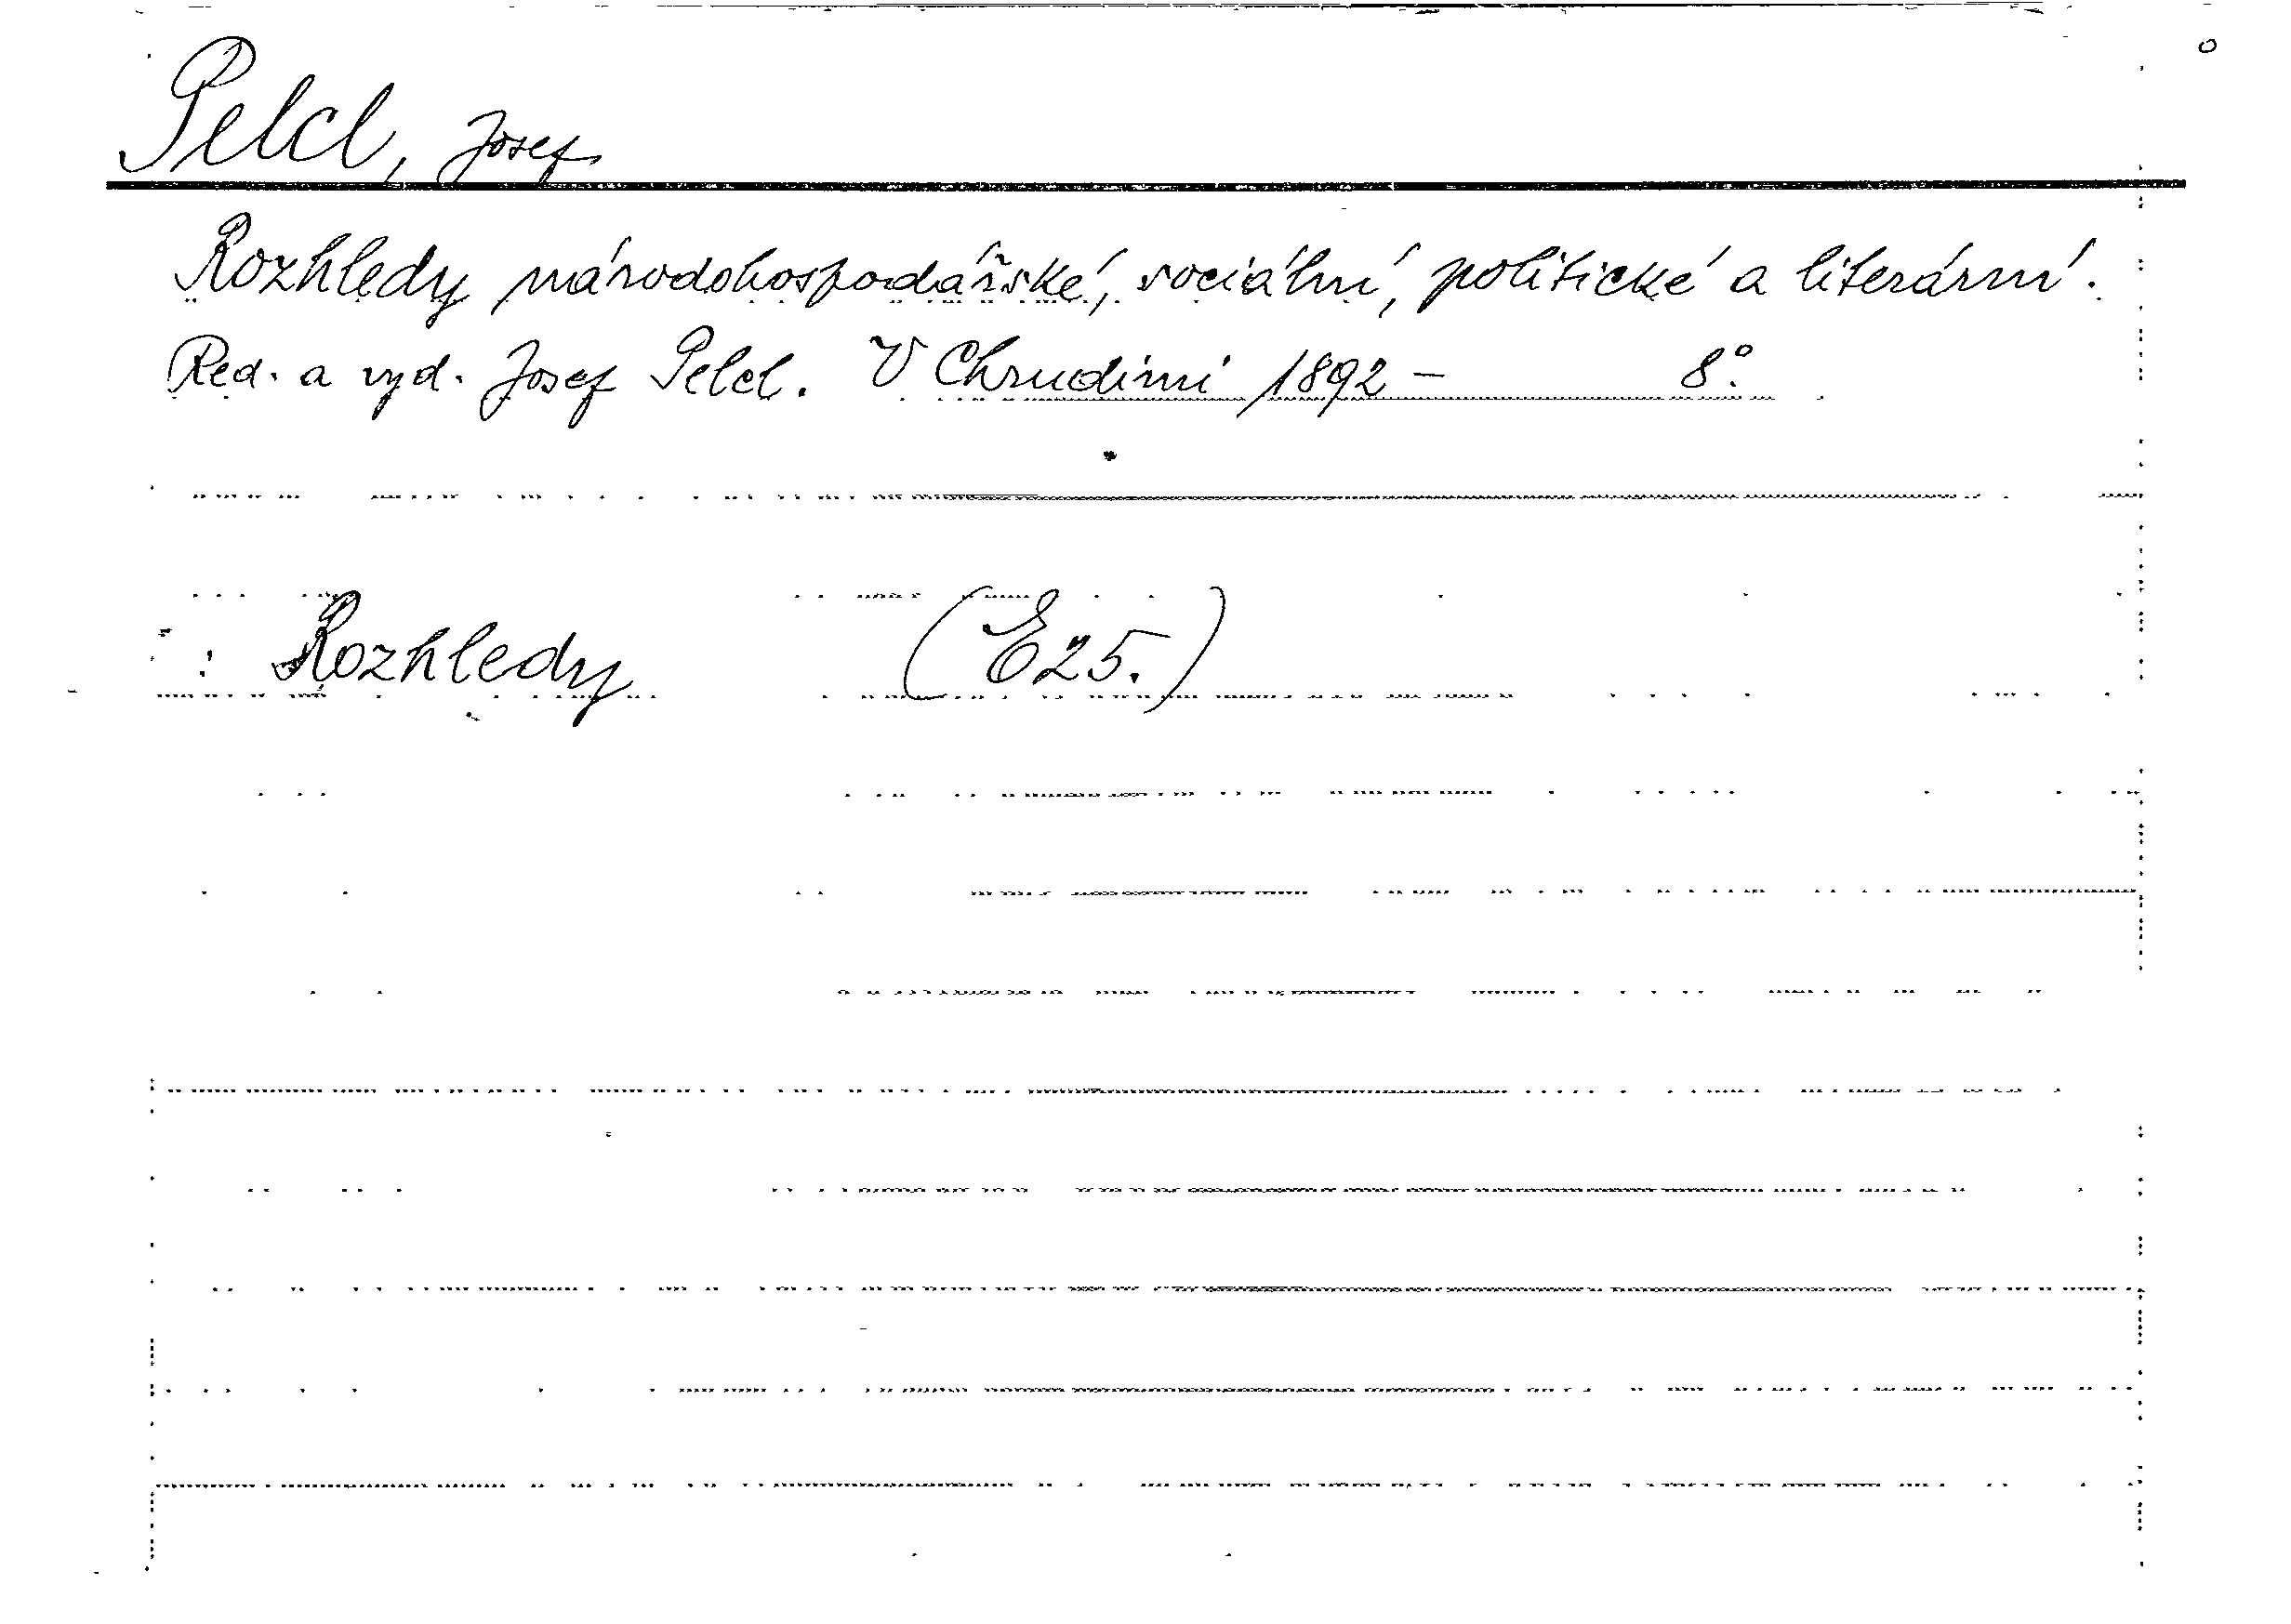 Pelcl, Josef
Rozhledy národohospodářské, sociální, politické a literární.
Red. a vyd. Josef Pelcl. V Chrudimi 1892 - 8°.
: Rozhledy (E25.)